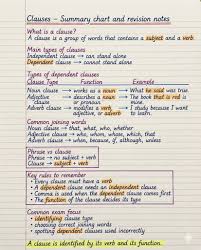 Clauses – Summary chart and revision notes
What is a clause?
A clause is a group of words that contains a subject and a verb.
Main types of clauses
Independent clause → can stand alone
Dependent clause → cannot stand alone
Types of dependent clauses
Clause Type Function Example
Noun clause → works as a noun → What he said was true.
Adjective clause → describes a noun or pronoun → The book that is red is mine.
Adverb clause → modifies a verb, adj. or adverb → I study because I want to learn.
Common joining words
Noun clause → that, what, who, whether
Adjective clause → who, whom, whose, which, that
Adverb clause → when, because, if, although, unless
Phrase vs clause
Phrase → no subject + verb
Clause → has subject + verb
Key rules to remember
• Every clause must have a verb
• A dependent clause needs an independent clause
• Comma is used when the dependent clause comes first
• The function of the clause decides its type
Common exam focus
• identifying clause type
• choosing correct joining words
• spotting dependent clauses used incorrectly
A clause is identified by its verb and its function.